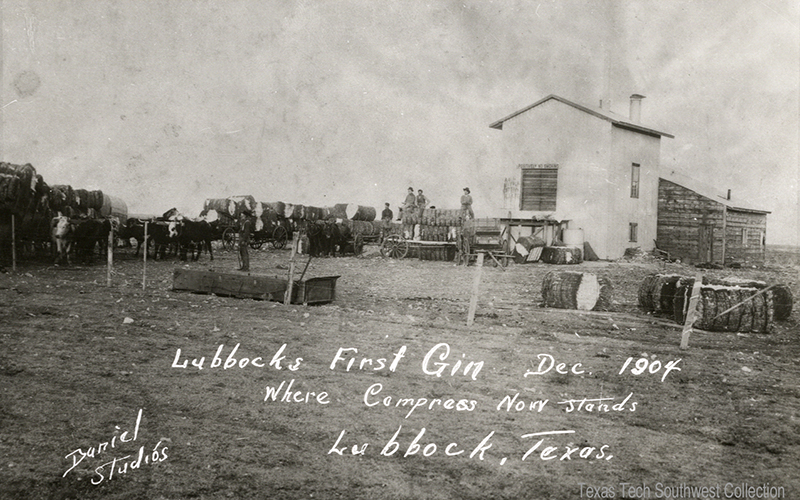 Lubbocks First Gin Dec. 1904
Where Compress Now stands
Lubbock, Texas.
Daniel
Studios
Texas Tech Southwest Collection